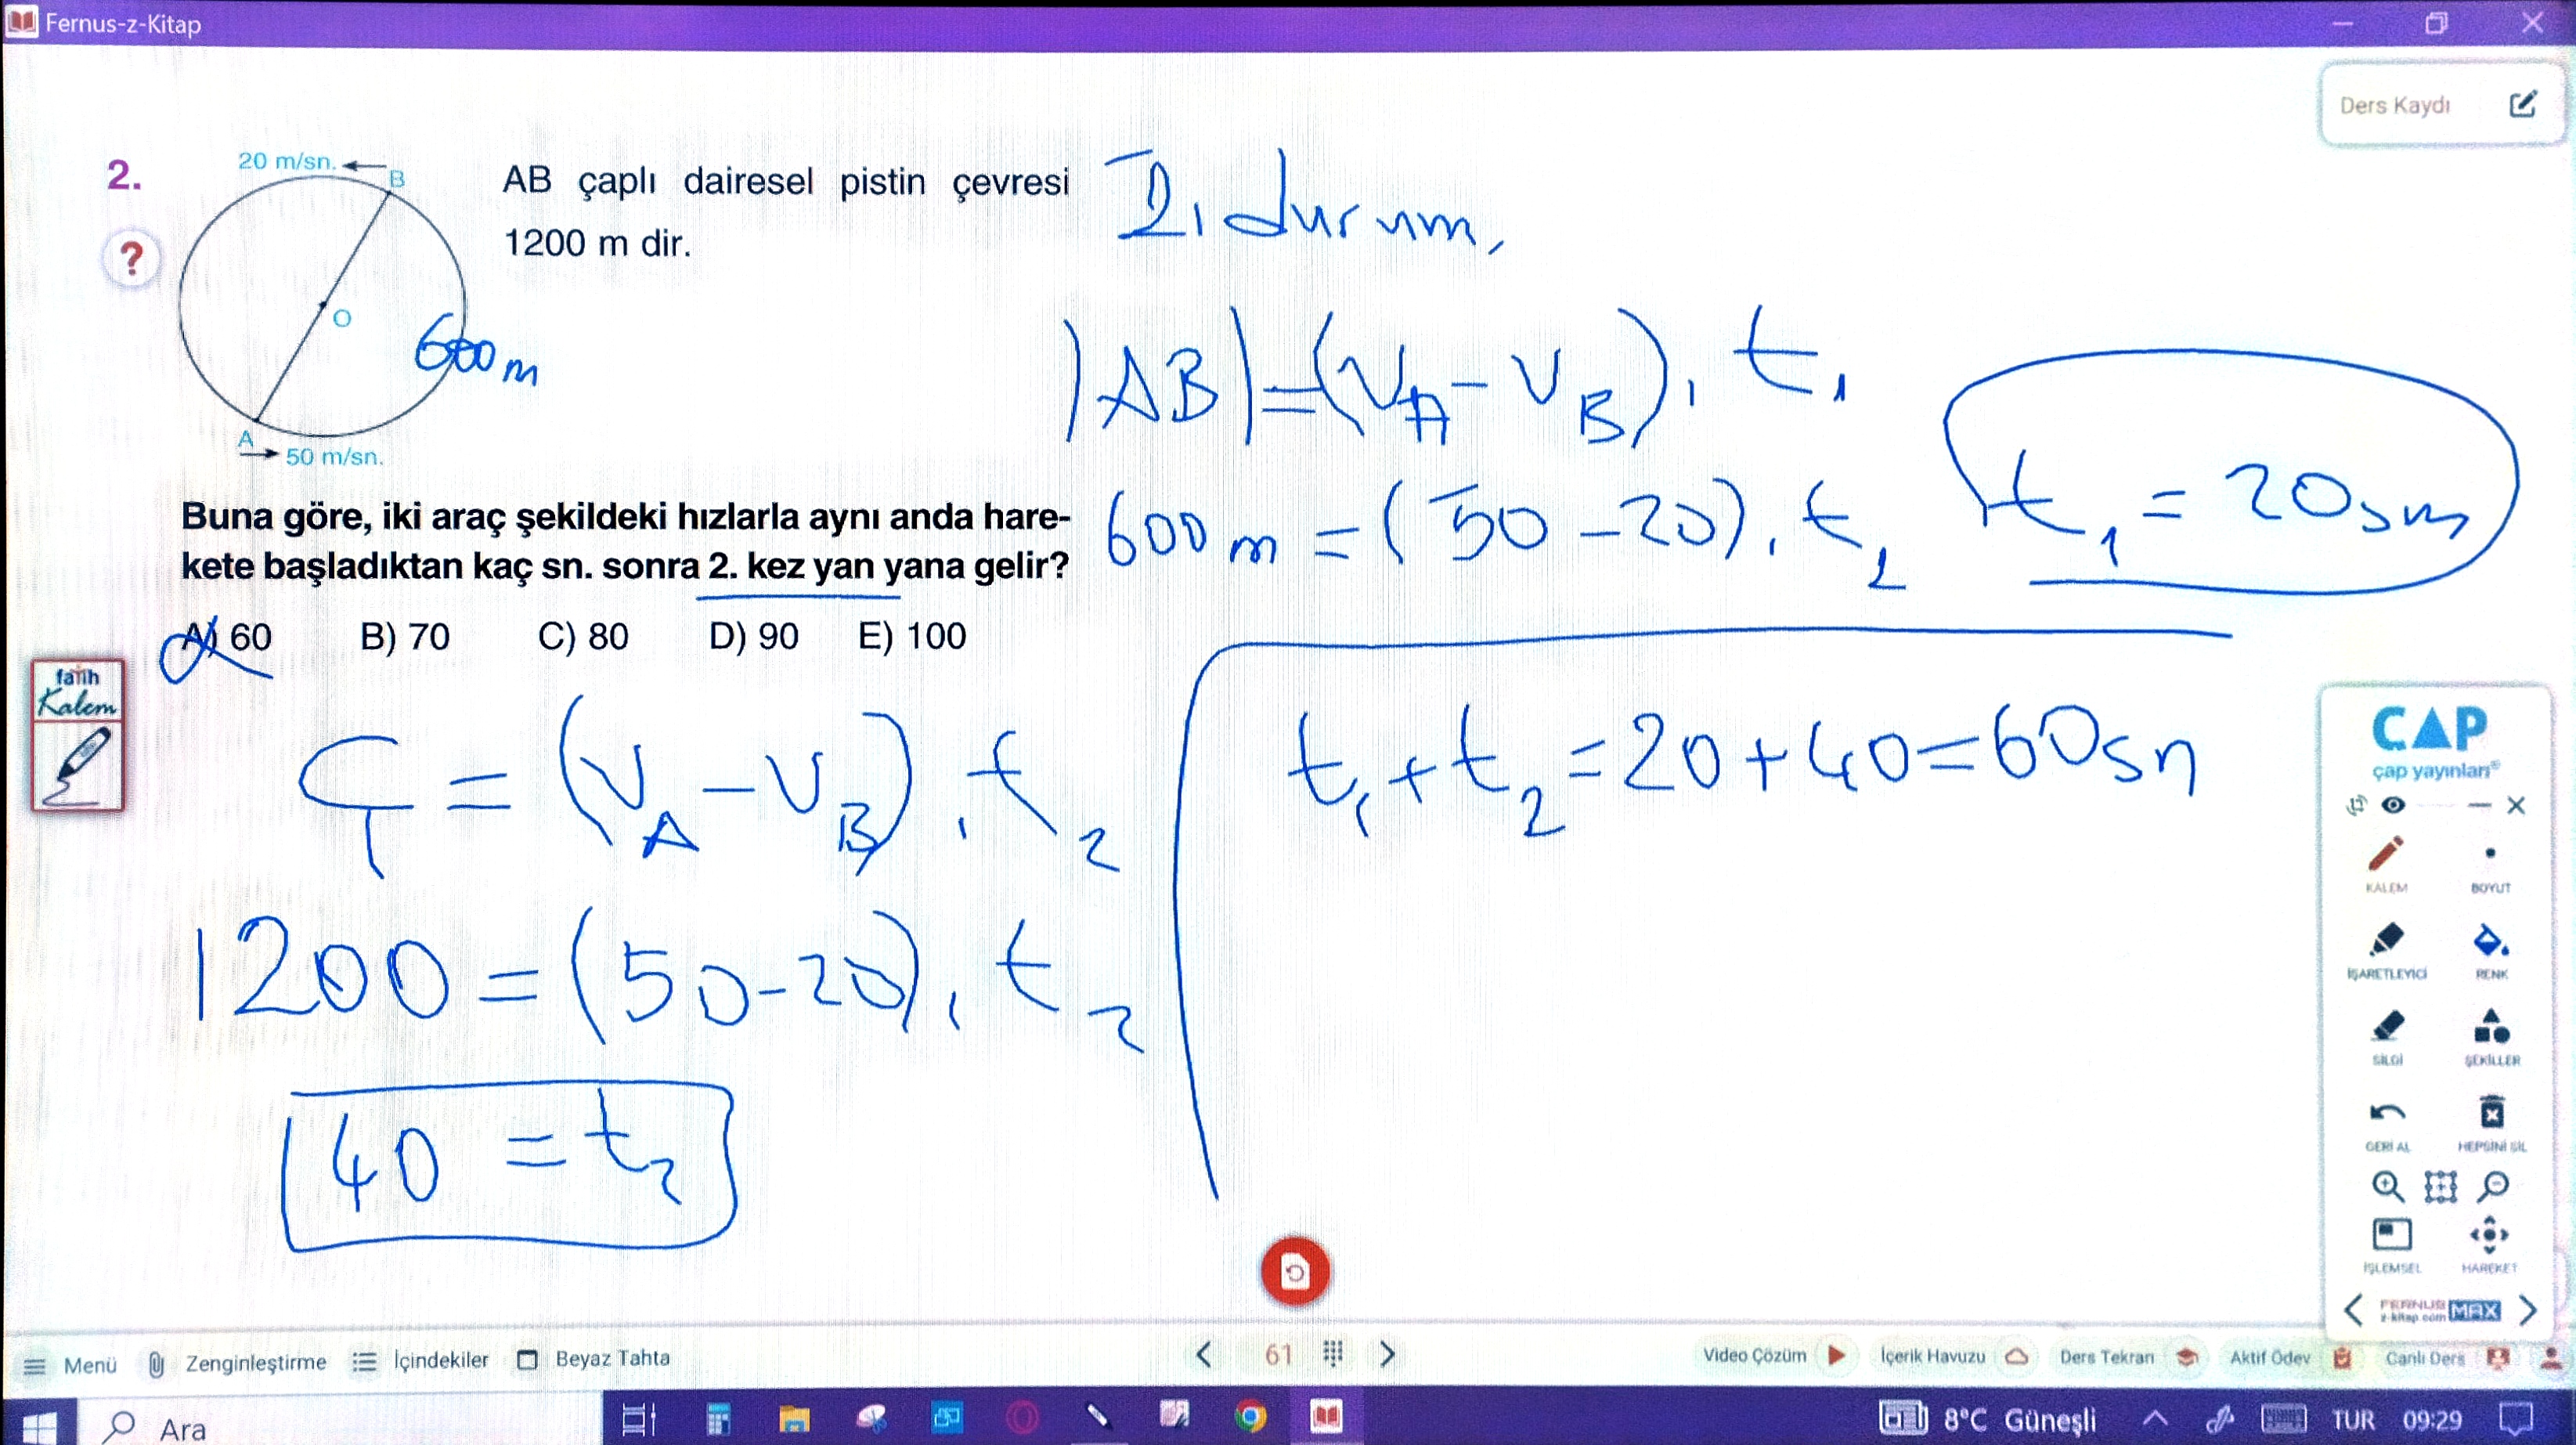 Fernus-z-Kitap
Ders Kaydı
2.
?
20 m/sn.
B
O
600m
A
50 m/sn.
AB çaplı dairesel pistin çevresi
1200 m dir.
Buna göre, iki araç şekildeki hızlarla aynı anda hare-
kete başladıktan kaç sn. sonra 2. kez yan yana gelir?
A) 60 B) 70 C) 80 D) 90 E) 100
durum,
|AB|=(VA-VB).t1
600m=(50-20).t2
t1=20sn
Ç=(VA-VB).t2
1200=(50-20).t2
40=t2
t1+t2=20+40=60sn
fatih
Kalem
ÇAP
çap yayınları®
KALEM BOYUT
İŞARETLEYİCİ RENK
SİLGİ ŞEKİLLER
GERİ AL HEPSİNİ SİL
İŞLEMSEL HAREKET
FERNUS MAX
z-kitap.com
Menü Zenginleştirme İçindekiler Beyaz Tahta
61
Video Çözüm İçerik Havuzu Ders Tekrarı Aktif Ödev Canlı Ders
Ara
8°C Güneşli TUR 09:29